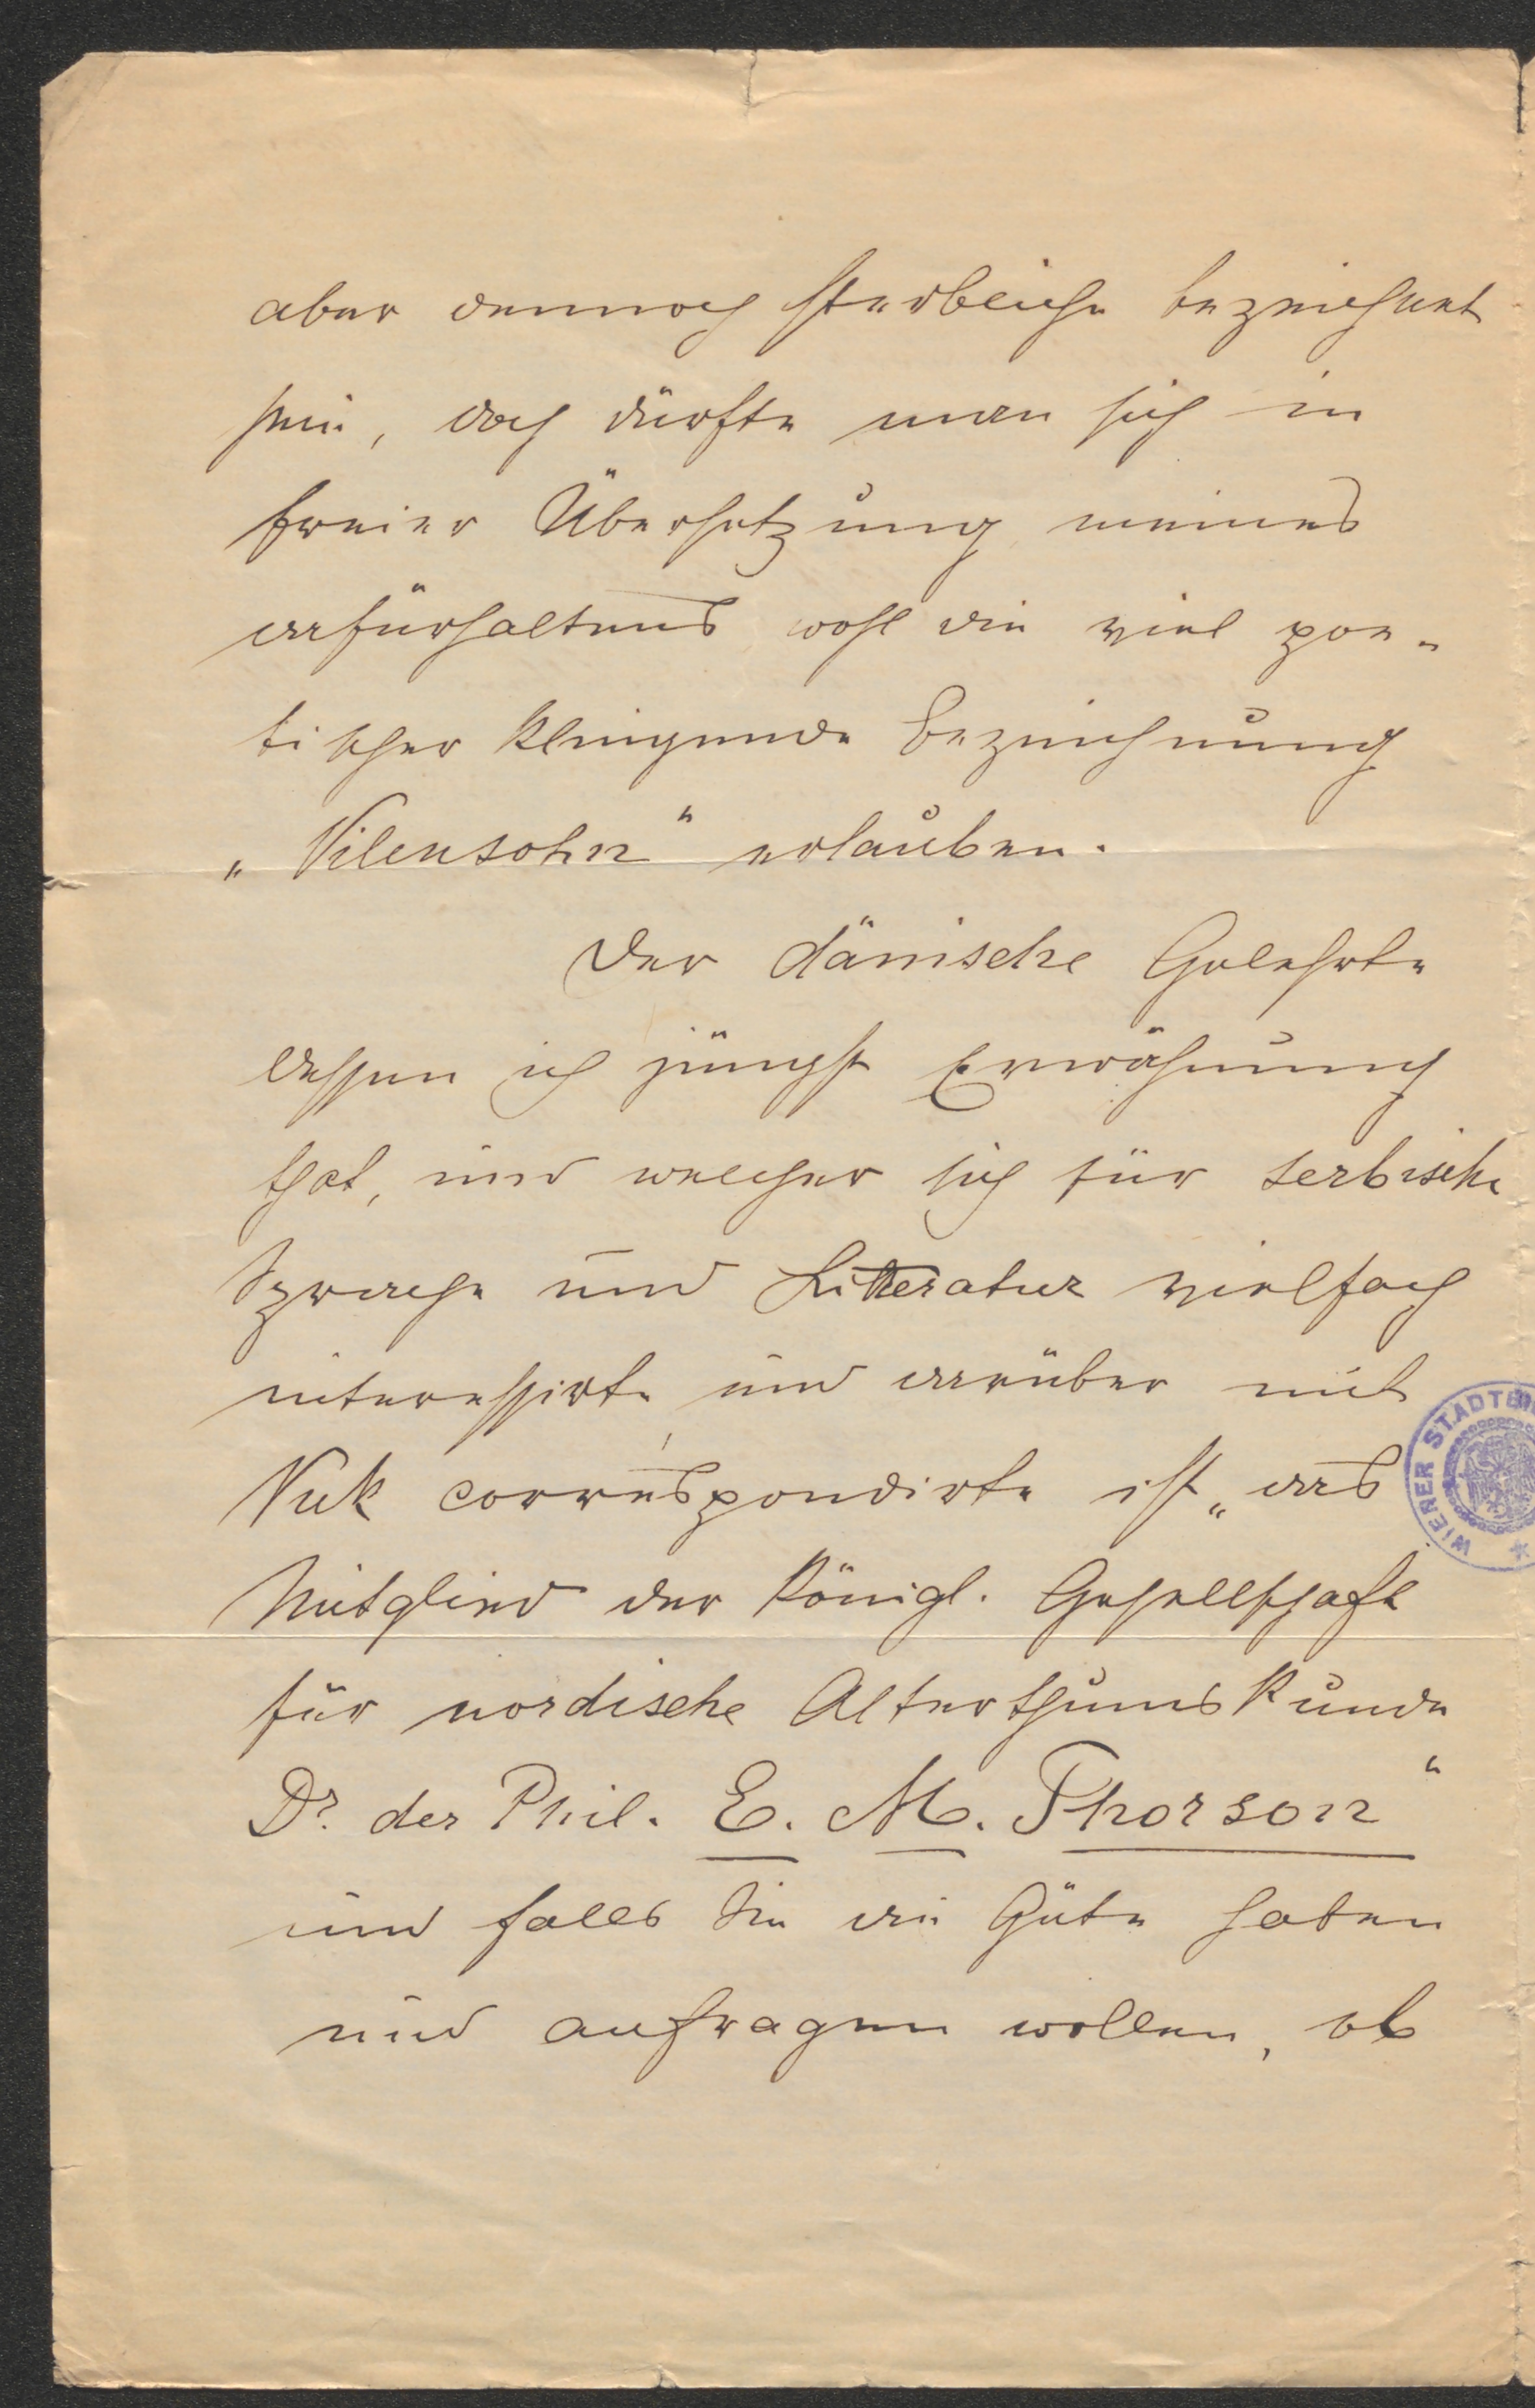 aber dennoch sterbliche bezeichnet
sein, doch dürfte man sich in
freier Übersetzung meines
dafürhaltens wohl die viel poe-
tischer klingende Bezeichnung
„Vilensohn“ erlauben.
Der dänische Gelehrte
dessen ich jüngst Erwähnung
that, und welcher sich für serbische
Sprache und Litteratur vielfach
interessirte und darüber mit
Vuk correspondirte ist „das
Mitglied der königl. Gesellschaft
für nordische Alterthumskunde
Dr. der Phil. E. M. Thorson“
und falls Sie die Güte haben
und anfragen wollen, ob
WIENER STADTBI